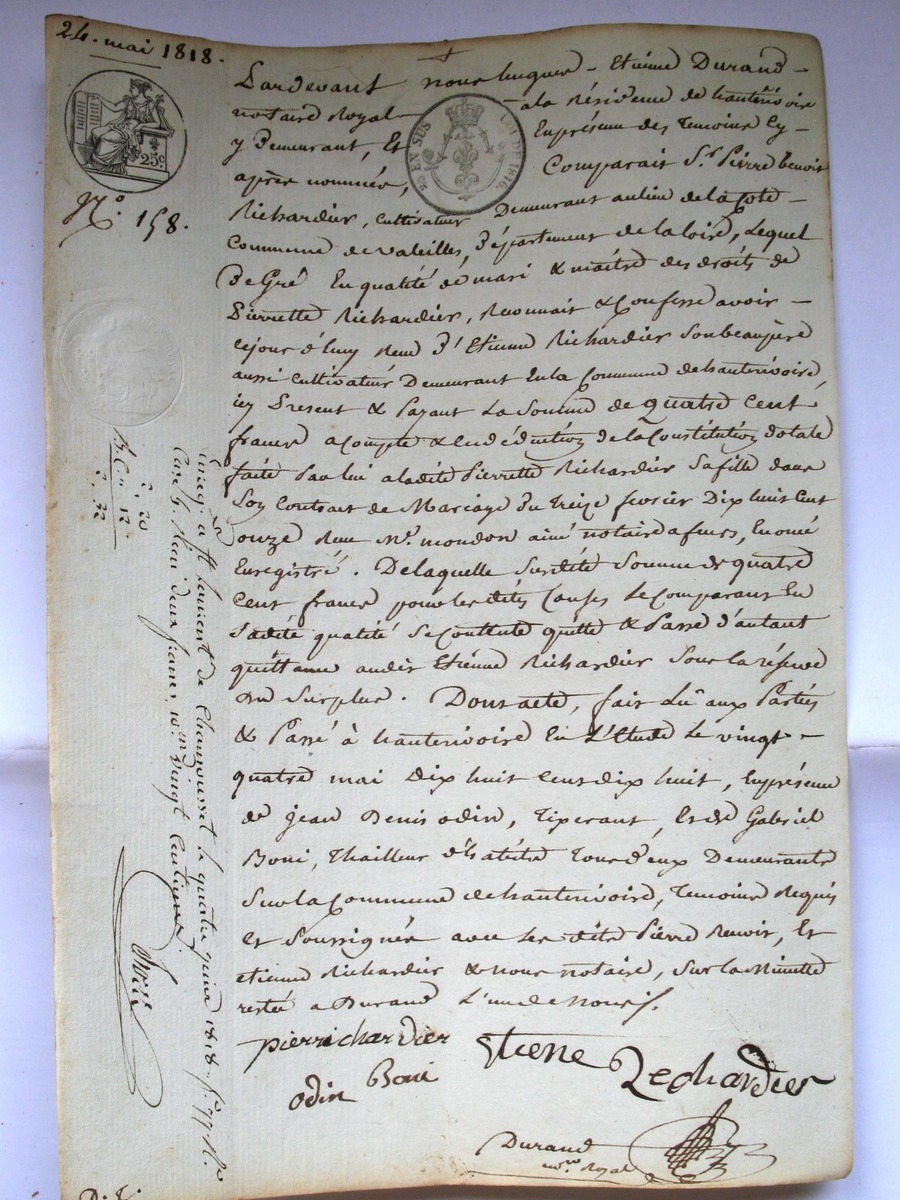 24. mai 1818.
Pardevant nous hugues - Etiénne Durand -
notaire Royal à la Résidence de hauterivoire
y Demeurant, Et En présence des Temoins Cy -
après nommés, Comparait Sr. Pierre benoit
Richardier, cultivateur Demeurant au lieu de la Cote -
Commune de valeilles, Département de la loire, Lequel
De Gré En qualité de mari & maître des droits de
Pierrette Richardier, Reconnait & Confesse avoir -
cejourd'huy Reçu D'Etiénne Richardier Son beaupère
aussi Cultivateur Demeurant En la Commune de hauterivoire
icy Présent & Payant La Somme de quatre Cent
francs acompte & En déduction de la Constitution dotale
faite Par lui a ladite Pierrette Richardier Sa fille dans
Son Contrat de Mariage Du treize fevrier Dix huit Cent
onze Reçu Me. mondon ainé notaire a feurs,
Enregistré. De laquelle Susdite Somme de quatre
Cent francs pour les dites Causes Le Comparant En
Sadite qualité Se Contente quitte & Passe d'autant
quittance audit Etiénne Richardier Sous la réserve
du Surplus. Dont acte, fait Lu aux Parties
& Passé à hauterivoire En L'Etude Le vingt -
quatre mai Dix huit Cent dix huit, En présence
de Jean Denis odin, Tisserant, Et de Gabriel
Boni, Thailleur d'habits Tous Deux Demeurants
Sur la Commune de hauterivoire, Temoins Requis
Et Soussignés avec Les dits Pierre Benoit, Et
etiénne Richardier & nous notaire, Sur la Minutte
restée a Durand L'un de nous.
pierrichardier
Etiene Richardier
odin Boni
Durand
nore Royal
25c
No. 158.
EN SUS
LOI DE 1816
2, 20
. 12
2, 32
Enreg. a St laurent de Chamousset le quatre juin 1818
deux francs, 10me vingt centimes.
D. E.